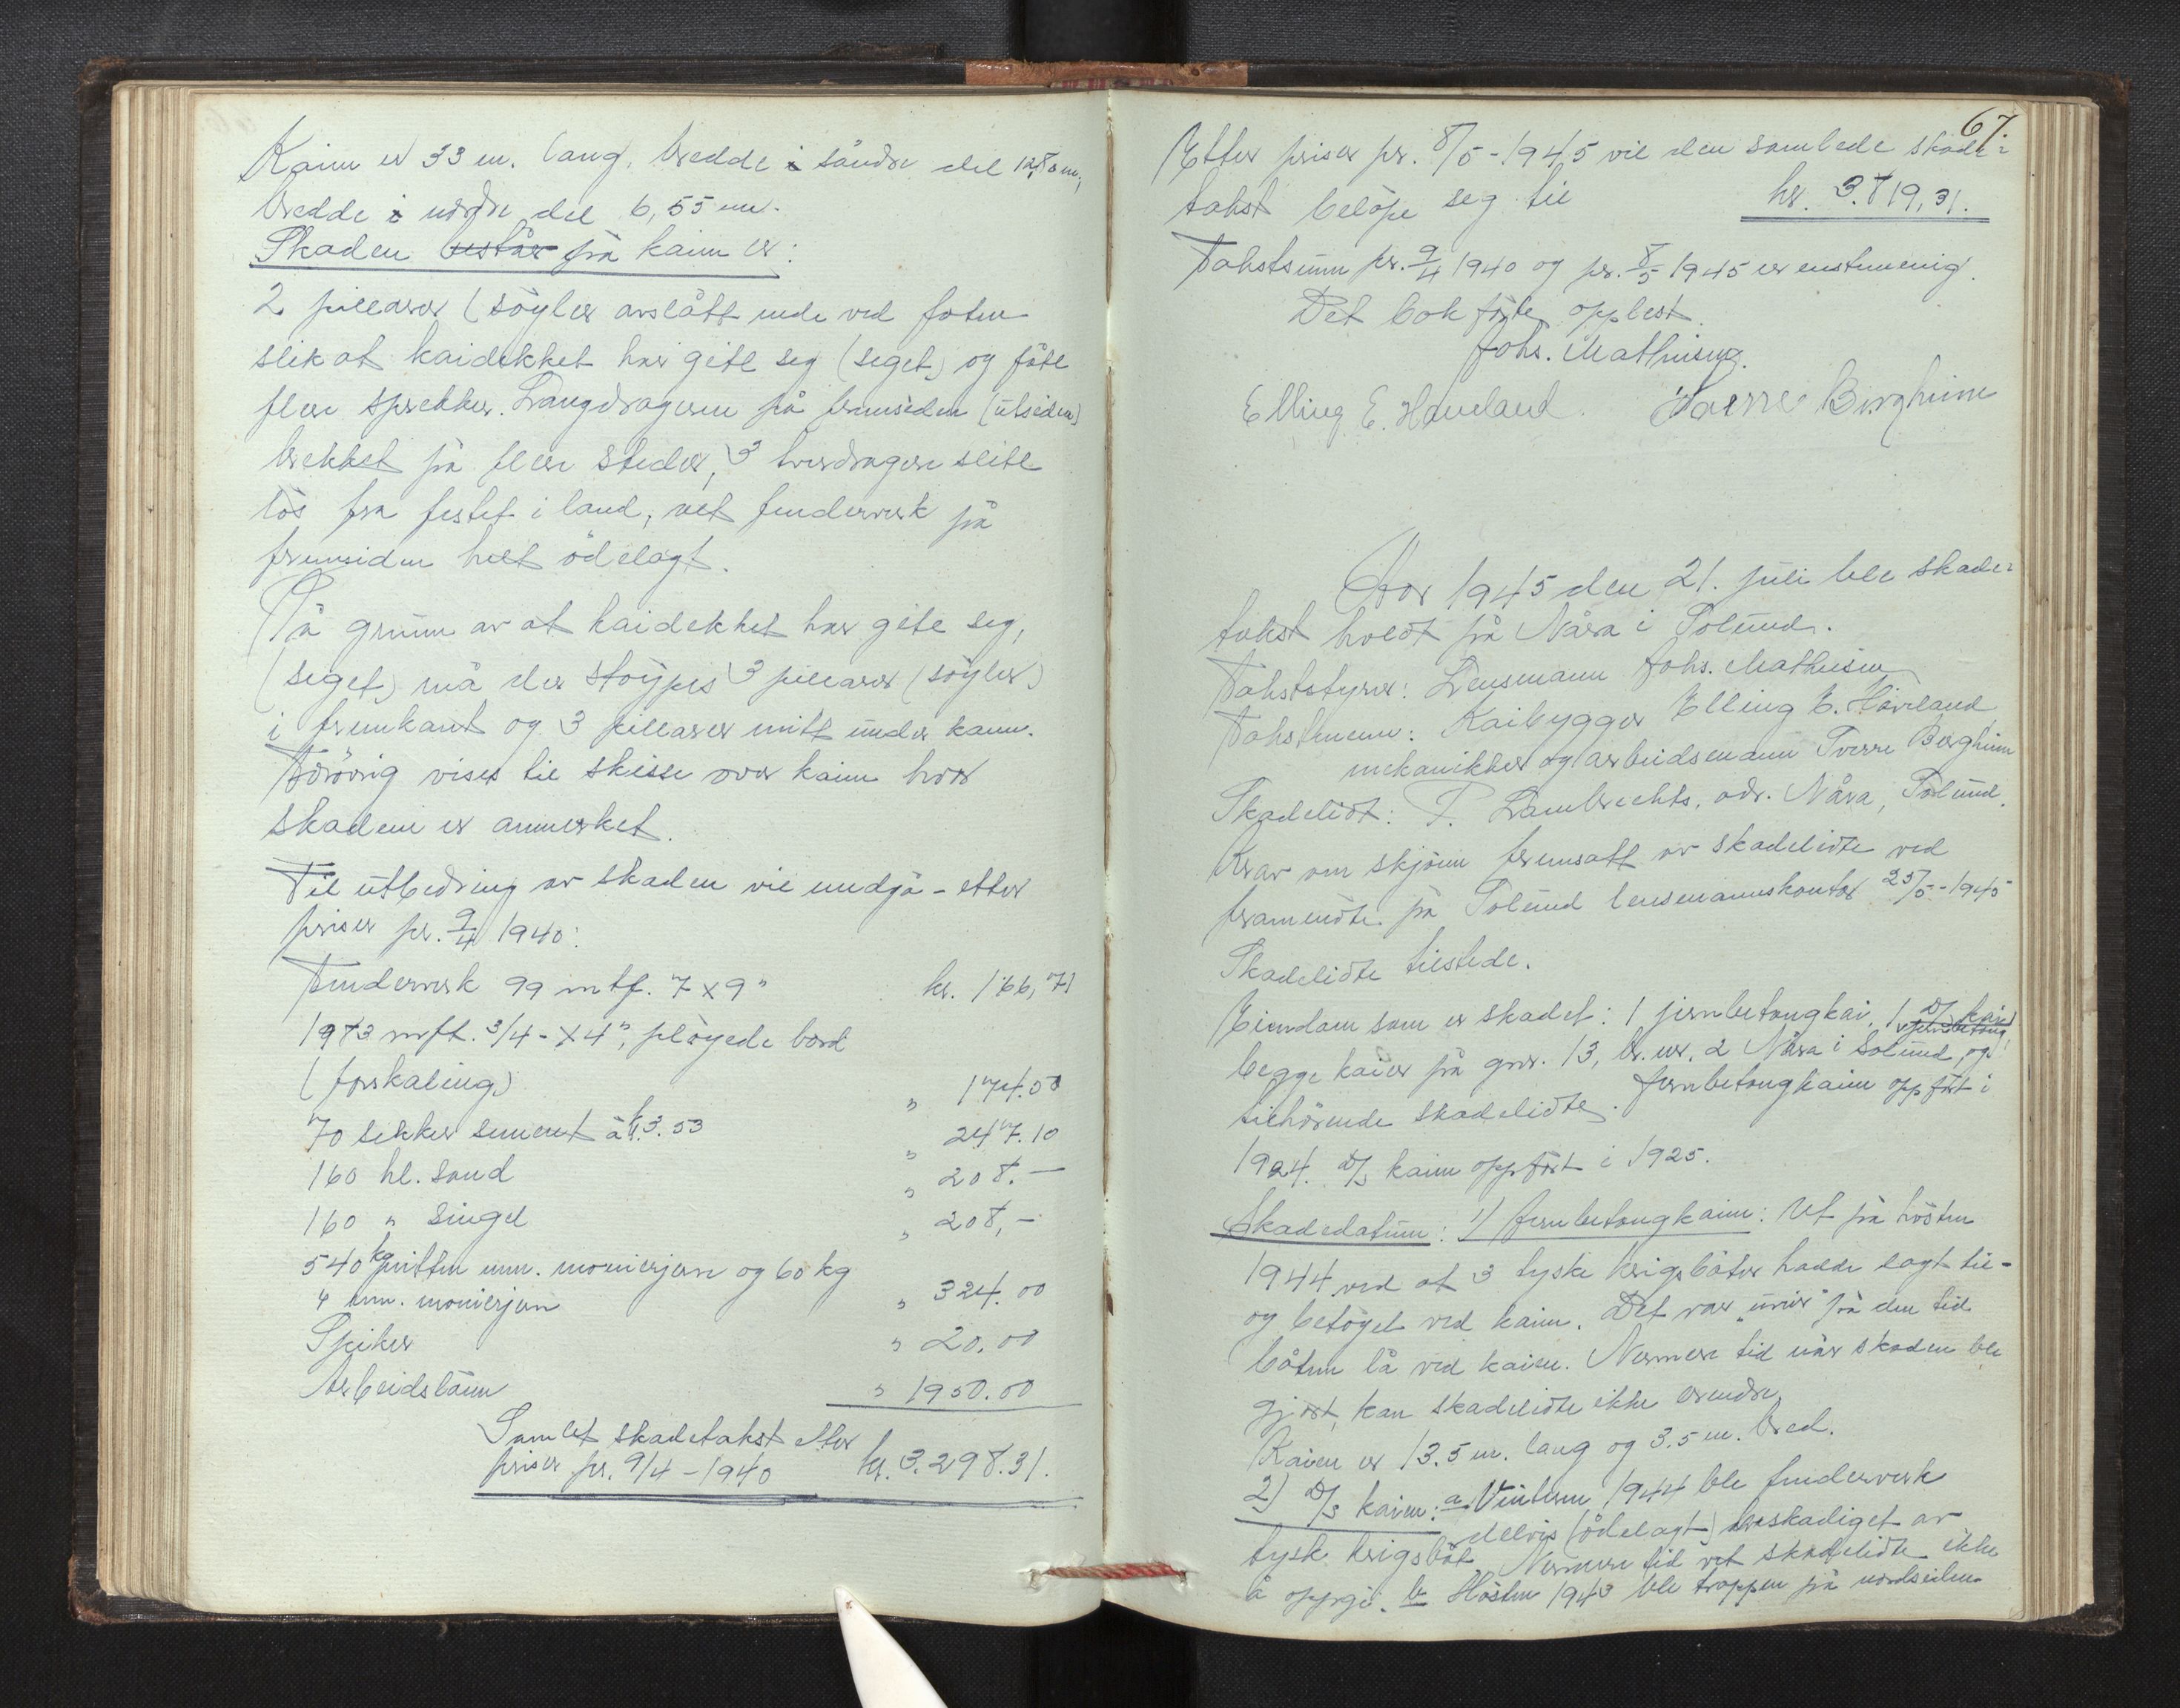 Kaien er 33 m. lang, bredde i söndre del 12,80 m.,
bredde i nordre del 6,55 m.
Skaden består på kaien er:
2 pillarer (söyler avslått nede ved foten
slik at kaidekket har gitt seg (seget) og fått
flere sprekker. Langdrageren på fremsiden (utsiden)
brekket på flere steder, 3 tverdragere slitt
lös fra festet i land, alt fenderverk på
fremsiden helt ödelagt.
På grunn av at kaidekket har gitt seg,
(seget) må der stöypes 3 pillarer (söyler)
i fremkant og 3 pillarer mitt under kaien.
Forövrig vises til skisse over kaien hvor
skadene er anmerket.
Til utbedring av skaden vil medgå - etter
priser pr. 9/4 1940:
Fenderverk 99 mtf. 7 x 9" kr. 166,71
1983 mft. 3/4 - x 4", plöyede bord
(forskaling) " 174.50
70 sekker sement à kr. 3.53 " 247.10
160 hl. sand " 208.-
160 " singel " 208,-
540 kg fritten mm. monierjern og 60 kg
4 mm. monierjern " 324.00
Spiker " 20.00
Arbeidslönn " 1950.00
Samlet skadetakst etter
priser pr. 9/4 - 1940 kr. 3.298.31.
67.
Etter priser pr. 8/5 - 1945 vil den samlede skade-
takst belöpe seg til kr. 3.819,31.
Takstsum pr. 9/4 1940 og pr. 8/5 1945 er enstemmig.
Det bokförte opplest.
Johs. Mathisen.
Elling E. Haveland. Sverre Borgheim
Aar 1945 den 21. juli ble skade-
takst holdt på Nåra i Solund.
Takststyrer: Lensmann Johs. Mathisen
Takstmenn: Kaibygger Elling E. Håveland
mekanikker og arbeidsmann Sverre Borgheim
Skadelidt: P. Lambrechts, adr. Nåra, Solund.
Krav om skjönn fremsatt av skadelidte ved
frammöte på Solund lensmannskontor 25/5 - 1945
Skadelidte tilstede.
Eiendom som er skadet: 1 jernbetongkai, 1 D/s kai,
jernbetong
begge kaier på gnr. 13, br. nr. 2 Nåra i Solund, og
tilhörende skadelidte. Jernbetongkaien oppfört i
1924. D/s kaien oppfört i 1925.
Skadedatum: 1) Jernbetongkaien: Ut på hösten
1944 ved at 3 tyske krigsbåter hadde lagt til-
og betöyet ved kaien. Det var "uvær" på den tid
båten lå ved kaien. Nermere tid når skaden ble
gjort, kan skadelidte ikke erindre.
Kaien er 13.5 m. lang og 3.5 m. bred.
2) D/s kaien: a Vinteren 1944 ble fenderverk
delvis (ödelagt) beskadiget av
tysk krigsbåt Nermere tid vet skadelidte ikke
å oppgi. b Hösten 1943 ble trappen på nordsiden